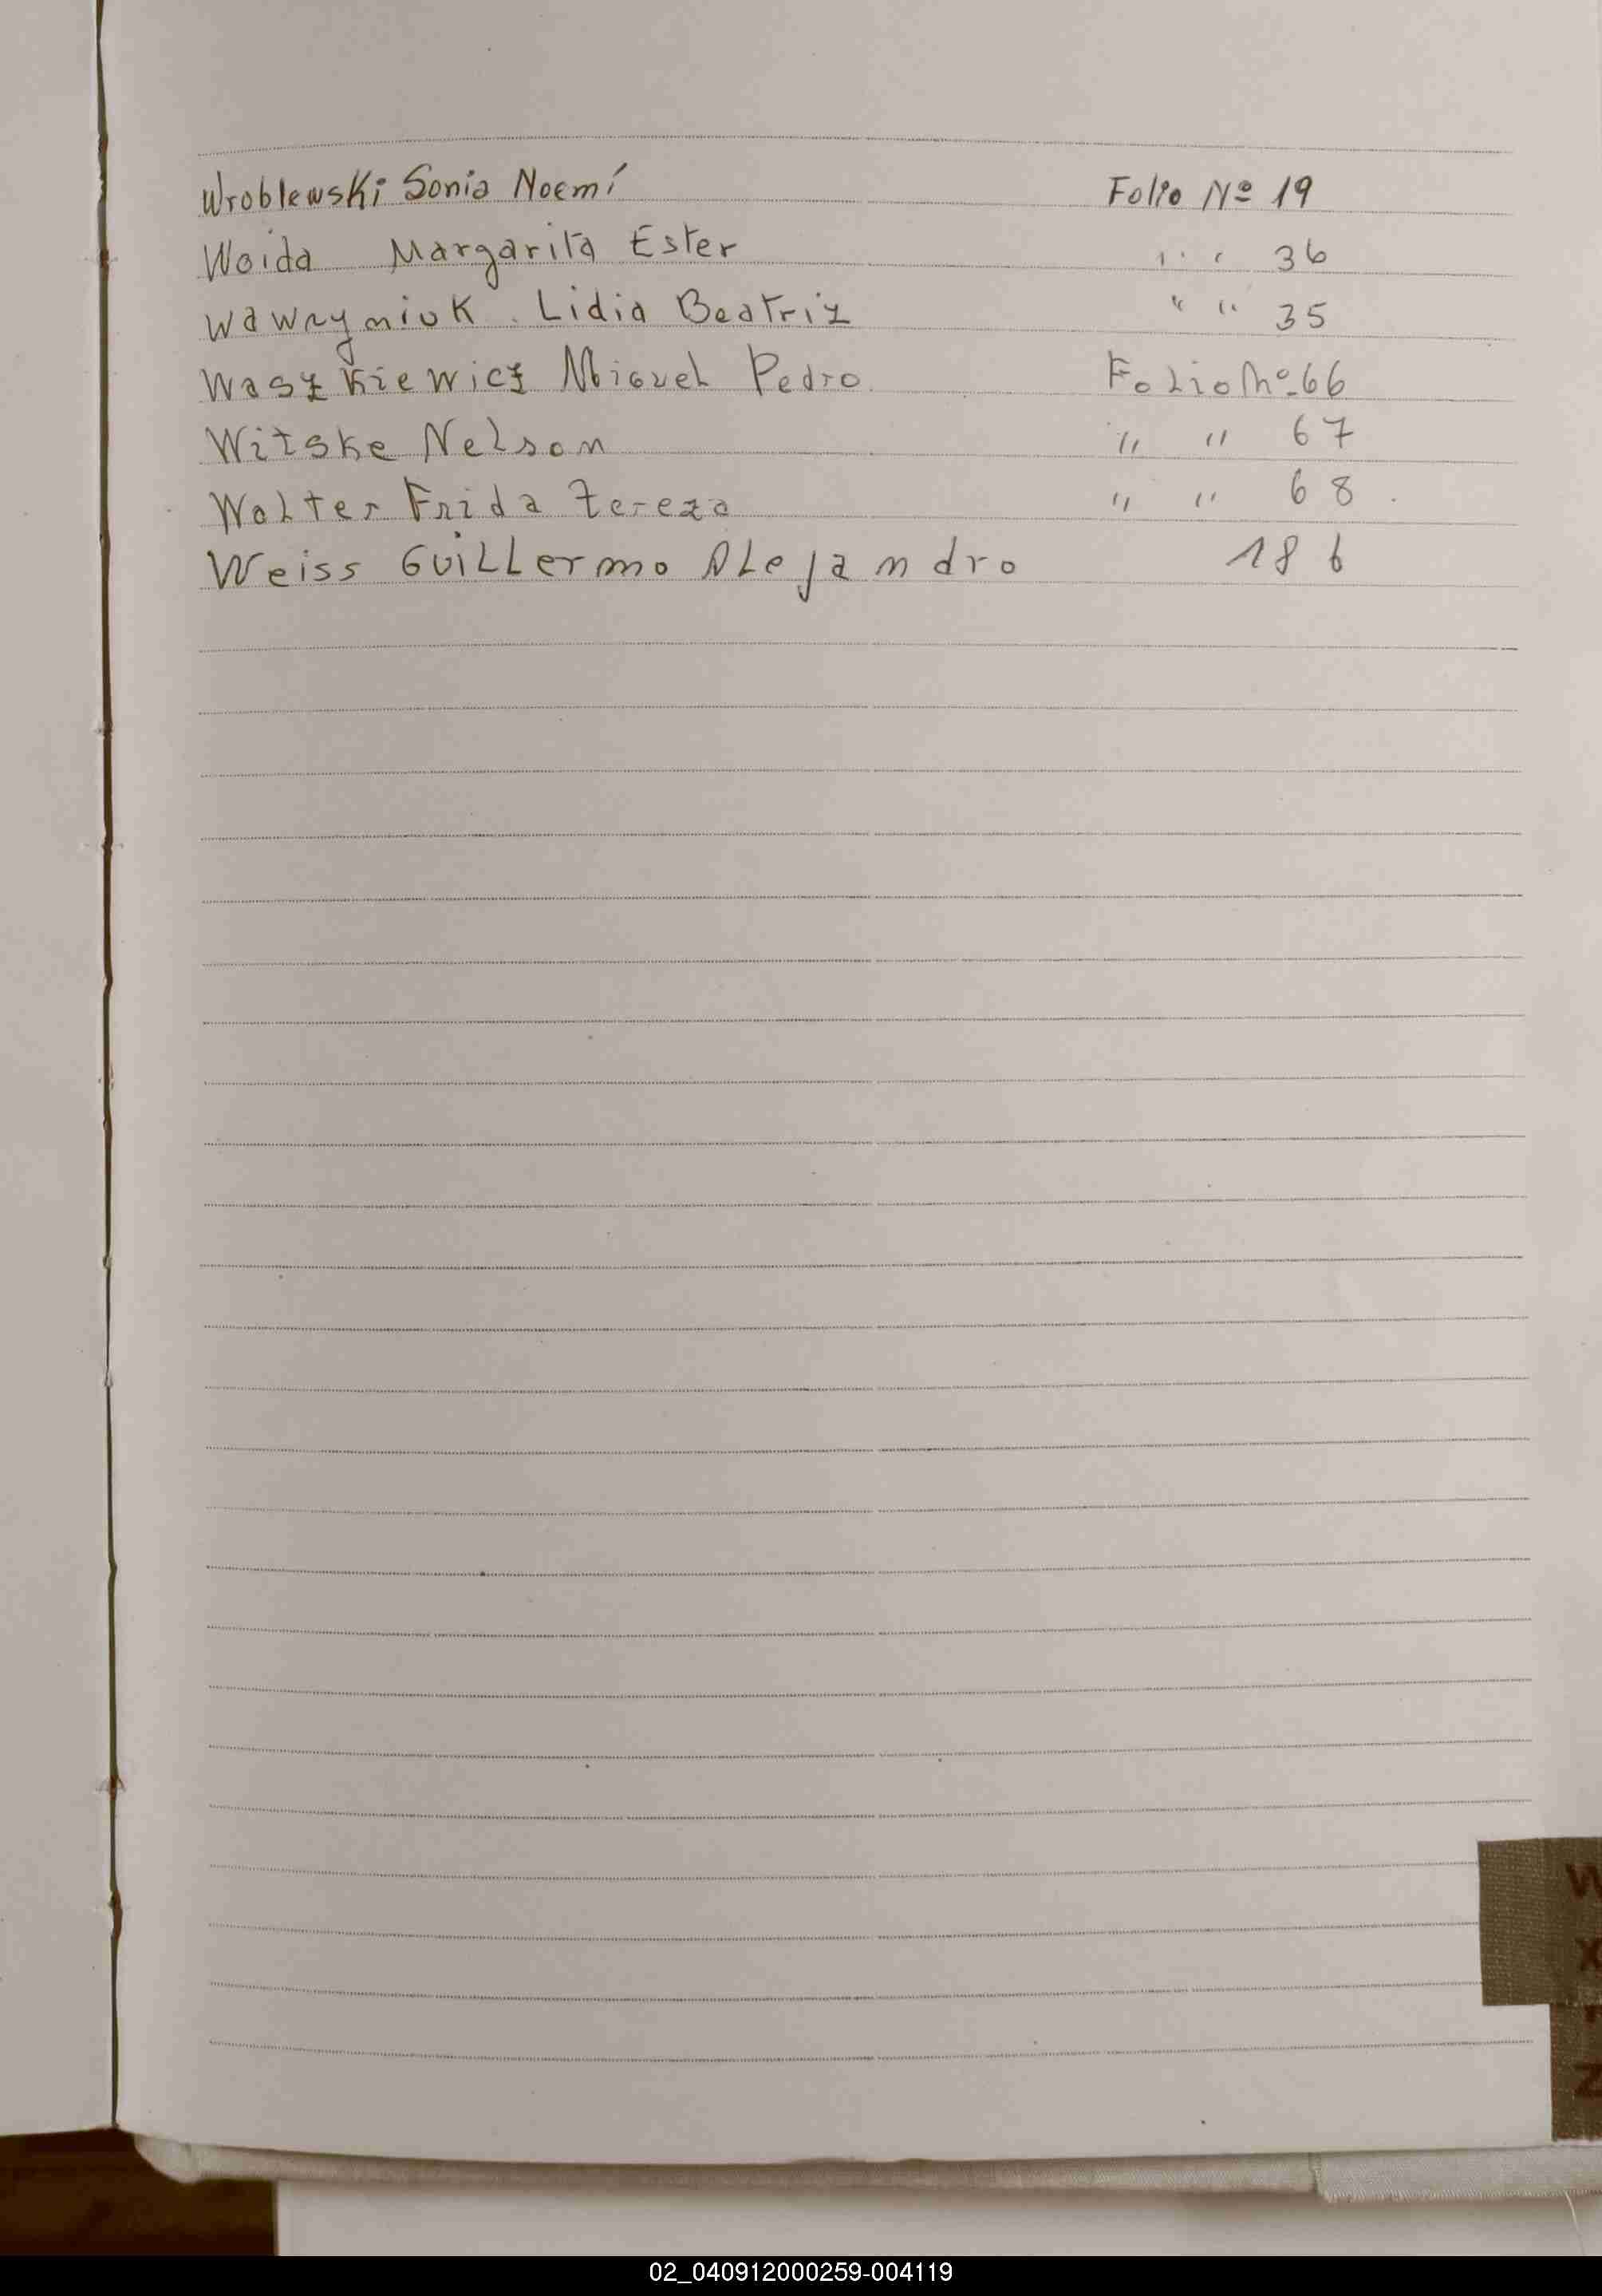 Wroblewski Sonia Noemí Folio Nº 19
Woida Margarita Ester " " 36
Wawryniuk Lidia Beatriz " " 35
Waszkiewicz Miguel Pedro Folio Nº 66
Witske Nelson " " 67
Wolter Frida Tereza " " 68
Weiss Guillermo Alejandro 186
W
X
Z
02_040912000259-004119